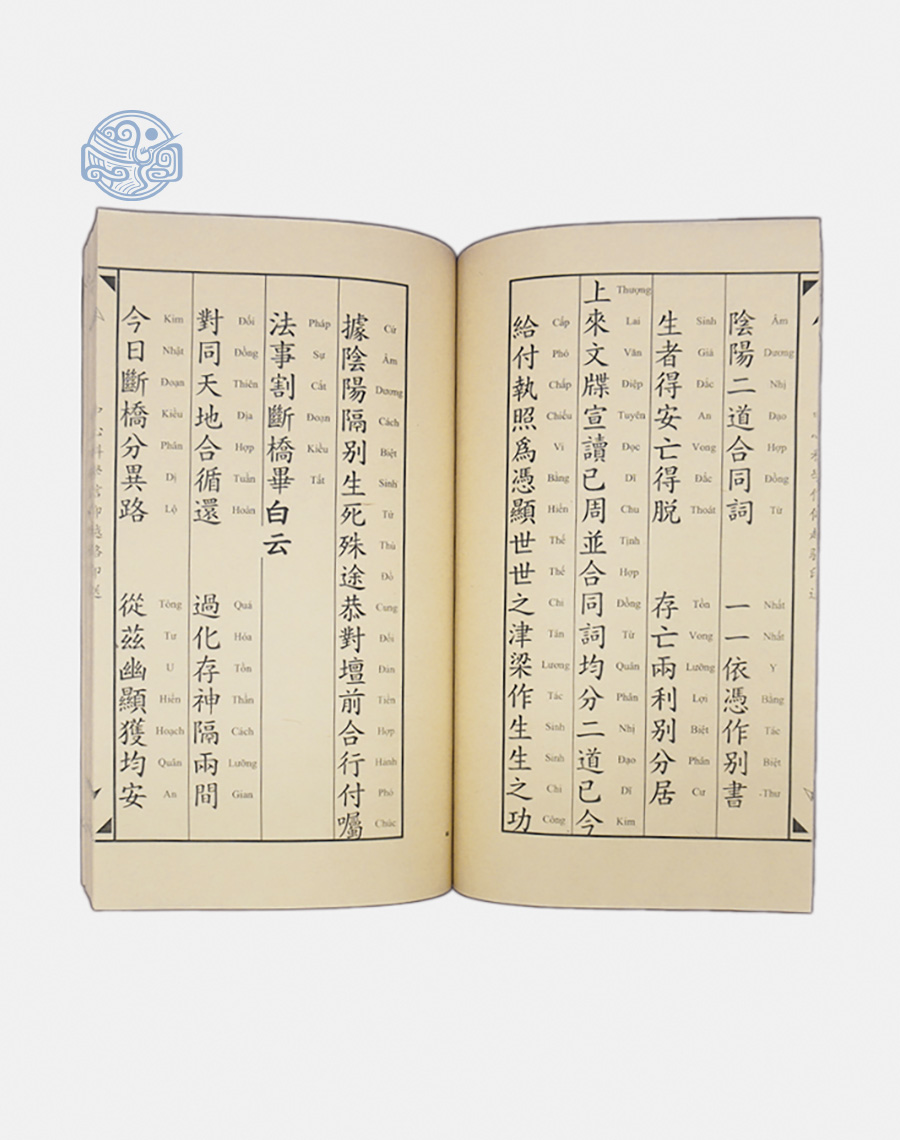 陰陽二道合同詞 一一依憑作別書
Âm Dương Nhị Đạo Hợp Đồng Từ Nhất Nhất Y Bằng Tác Biệt Thư
生者得安亡得脱 存亡兩利别分居
Sinh Giả Đắc An Vong Đắc Thoát Tồn Vong Lưỡng Lợi Biệt Phân Cư
上來文牒宣讀已周並合同詞均分二道已今
Thượng Lai Văn Điệp Tuyên Đọc Dĩ Chu Tịnh Hợp Đồng Từ Quân Phân Nhị Đạo Dĩ Kim
給付執照爲憑顯世世之津梁作生生之功
Cấp Phó Chấp Chiếu Vi Bằng Hiển Thế Thế Chi Tân Lương Tác Sinh Sinh Chi Công
據陰陽隔别生死殊途恭對壇前合行付囑
Cứ Âm Dương Cách Biệt Sinh Tử Thù Đồ Cung Đối Đàn Tiền Hợp Hành Phó Chúc
法事割斷橋畢白云
Pháp Sự Cắt Đoạn Kiều Tất
對同天地合循還 過化存神隔兩間
Đối Đồng Thiên Địa Hợp Tuần Hoàn Quá Hóa Tồn Thần Cách Lưỡng Gian
今日斷橋分異路 從茲幽顯獲均安
Kim Nhật Đoạn Kiều Phân Dị Lộ Tòng Tư U Hiển Hoạch Quân An